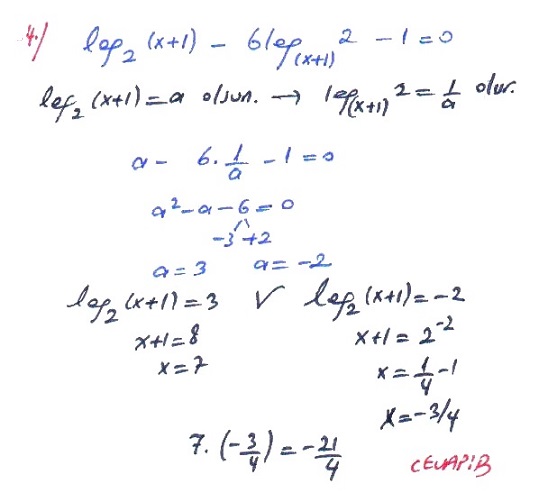 4./ log₂(x+1) - 6log₍ₓ₊₁₎2 - 1 = 0
log₂(x+1) = a olsun. → log₍ₓ₊₁₎2 = 1/a olur.
a - 6. 1/a - 1 = 0
a² - a - 6 = 0
-3 +2
a = 3 a = -2
log₂(x+1) = 3 V log₂(x+1) = -2
x+1 = 8 x+1 = 2⁻²
x = 7 x = 1/4 - 1
x = -3/4
7. (-3/4) = -21/4
CEVAP: B